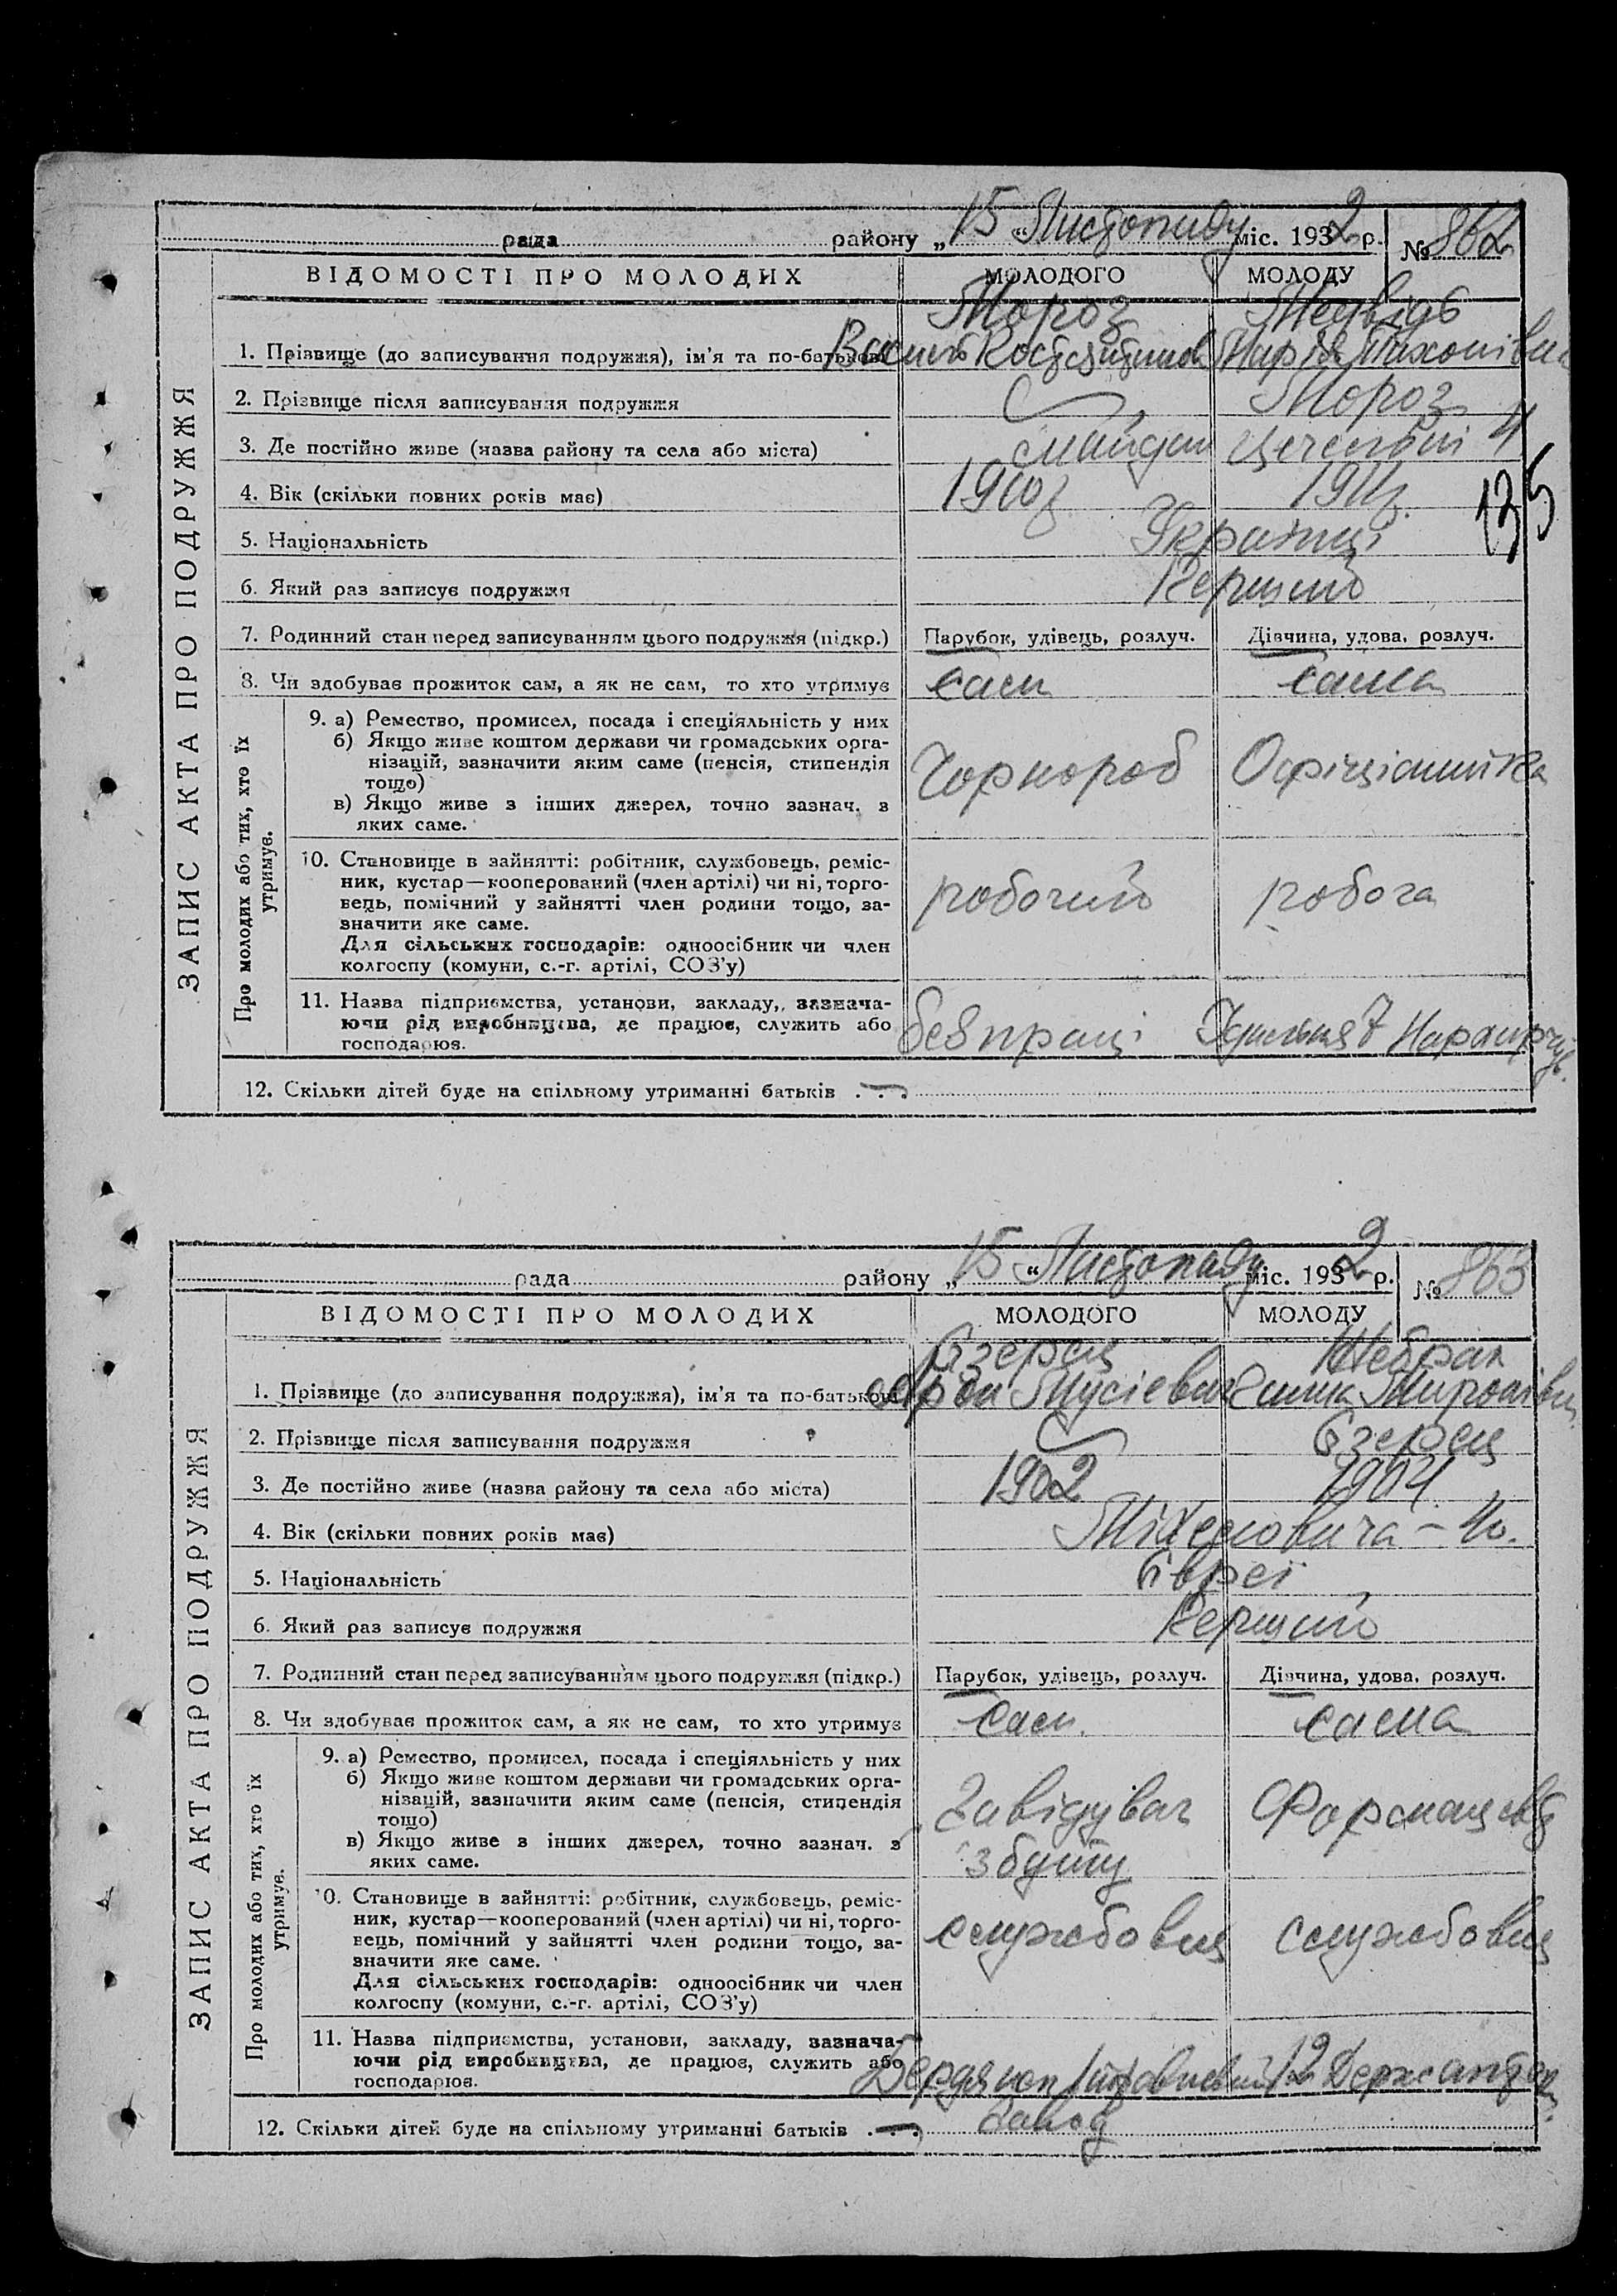 рада району „15“ Листопаду міс. 1932 р. № 862
ВІДОМОСТІ ПРО МОЛОДИХ МОЛОДОГО МОЛОДУ
Мороз Медвідь
1. Прізвище (до записування подружжя), ім'я та по-батькові Марія Тихонівна
2. Прізвище після записування подружжя Мороз
3. Де постійно живе (назва району та села або міста)
4. Вік (скільки повних років має) 1910 р. 1911 р.
135
5. Національність Українці
6. Який раз записує подружжя Перший
7. Родинний стан перед записуванням цього подружжя (підкр.) Парубок, удівець, розлуч. Дівчина, удова, розлуч.
8. Чи здобуває прожиток сам, а як не сам, то хто утримує сам сама
ЗАПИС АКТА ПРО ПОДРУЖЖЯ
Про молодих або тих, хто їх утримує.
9. а) Ремество, промисел, посада і спеціяльність у них
б) Якщо живе коштом держави чи громадських орга-
нізацій, зазначити яким саме (пенсія, стипендія
тощо)
в) Якщо живе з інших джерел, точно зазнач. з
яких саме.
Чорнороб Офіціянтка
10. Становище в зайнятті: робітник, службовець, реміс-
ник, кустар—кооперований (член артілі) чи ні, торго-
вець, помічний у зайнятті член родини тощо, за-
значити яке саме.
Для сільських господарів: одноосібник чи член
колгоспу (комуни, с.-г. артілі, СОЗ'у)
робочий робоча
11. Назва підприємства, установи, закладу, зазнача-
ючи рід виробництва, де працює, служить або
господарює.
без праці Їдальня 7
12. Скільки дітей буде на спільному утриманні батьків . . .
рада району „15“ Листопаду міс. 1932 р. № 863
ВІДОМОСТІ ПРО МОЛОДИХ МОЛОДОГО МОЛОДУ
Єзерец Жебрак
1. Прізвище (до записування подружжя), ім'я та по-батькові Мусієвич Миронівна
2. Прізвище після записування подружжя Єзерец
3. Де постійно живе (назва району та села або міста) 1902 1904
4. Вік (скільки повних років має)
5. Національність Євреї
6. Який раз записує подружжя Перший
7. Родинний стан перед записуванням цього подружжя (підкр.) Парубок, удівець, розлуч. Дівчина, удова, розлуч.
8. Чи здобуває прожиток сам, а як не сам, то хто утримує сам сама
ЗАПИС АКТА ПРО ПОДРУЖЖЯ
Про молодих або тих, хто їх утримує.
9. а) Ремество, промисел, посада і спеціяльність у них
б) Якщо живе коштом держави чи громадських орга-
нізацій, зазначити яким саме (пенсія, стипендія
тощо)
в) Якщо живе з інших джерел, точно зазнач. з
яких саме.
Завідувач Фармацевт
збуту
10. Становище в зайнятті: робітник, службовець, реміс-
ник, кустар—кооперований (член артілі) чи ні, торго-
вець, помічний у зайнятті член родини тощо, за-
значити яке саме.
Для сільських господарів: одноосібник чи член
колгоспу (комуни, с.-г. артілі, СОЗ'у)
службовец службовец
11. Назва підприємства, установи, закладу, зазнача-
ючи рід виробництва, де працює, служить або
господарює.
12
завод
12. Скільки дітей буде на спільному утриманні батьків . . .